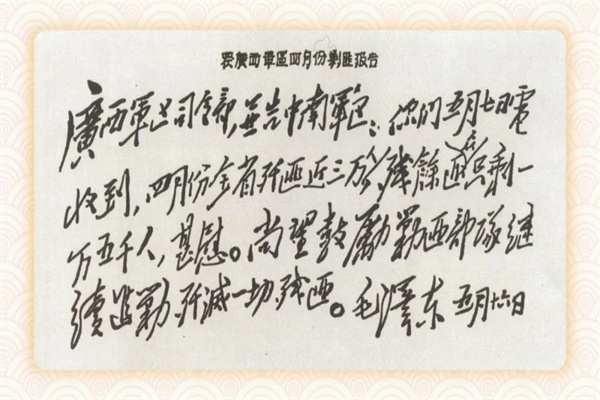 广西軍區四月份剿匪报告
廣西軍区司令部,並告中南軍区:你们五月七日電
收到,四月份全省歼匪近三万,残餘匪只剩一
万五千人,甚慰。尚望鼓勵剿匪部隊継
續追剿,歼滅一切残匪。毛澤东 五月十六日